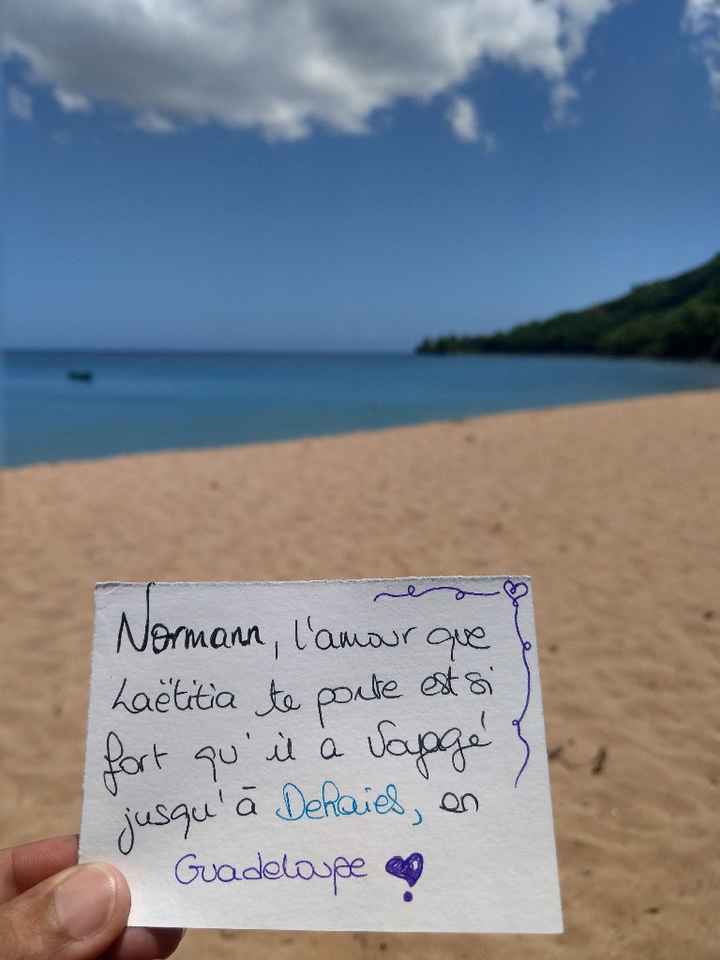 Normann, l'amour que
Laëtitia te porte est si
fort qu'il a voyagé
jusqu'à Dehaies, en
Guadeloupe